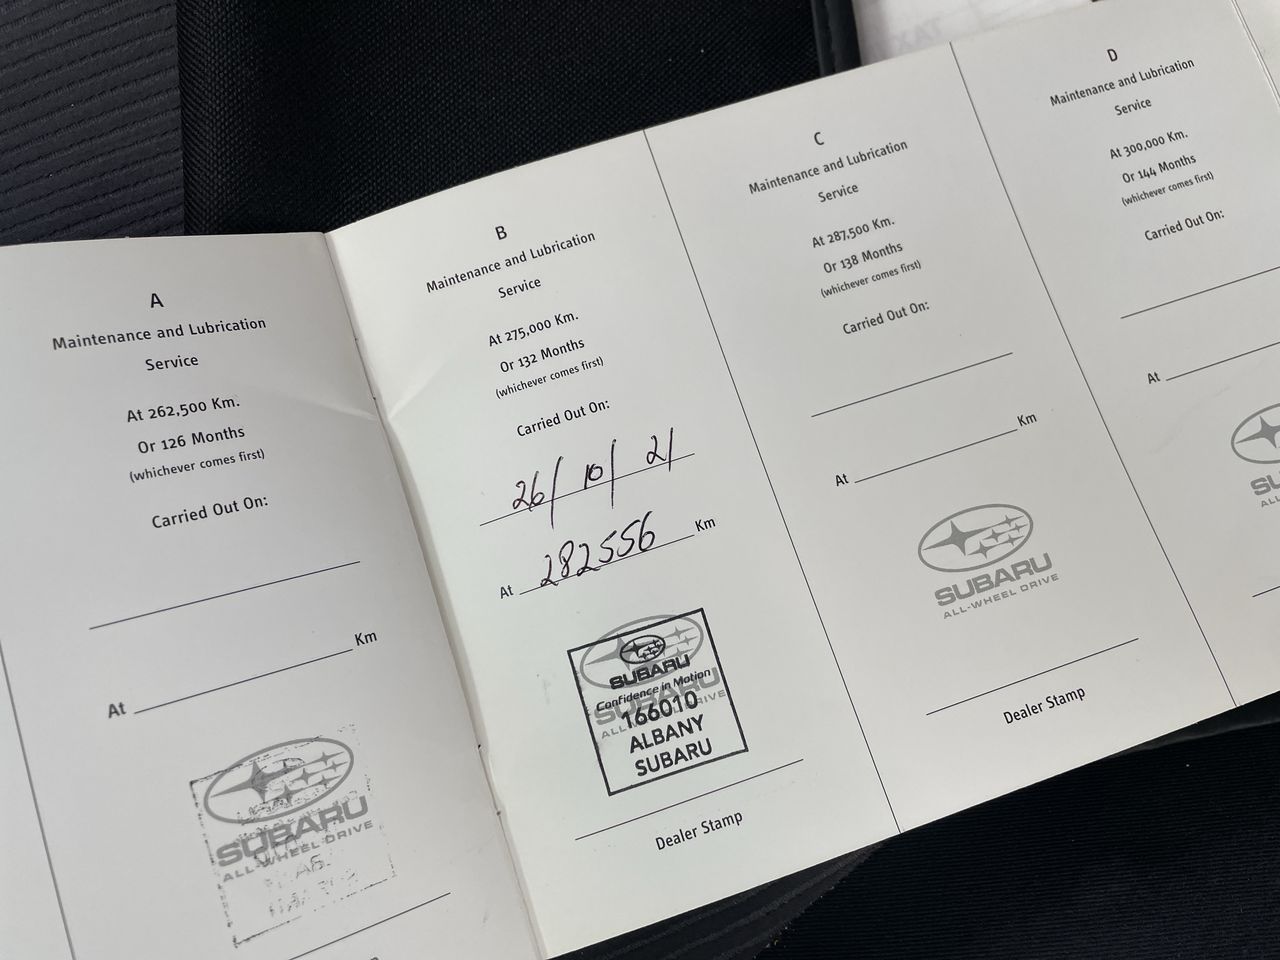 A
Maintenance and Lubrication
Service
At 262,500 Km.
Or 126 Months
(whichever comes first)
Carried Out On:
Km
At
SUBARU
ALL-WHEEL DRIVE
B
Maintenance and Lubrication
Service
At 275,000 Km.
Or 132 Months
(whichever comes first)
Carried Out On:
26/10/21
At 282556 Km
SUBARU
Confidence in Motion
166010
ALBANY
SUBARU
Dealer Stamp
C
Maintenance and Lubrication
Service
At 287,500 Km.
Or 138 Months
(whichever comes first)
Carried Out On:
At Km
SUBARU
ALL-WHEEL DRIVE
Dealer Stamp
D
Maintenance and Lubrication
Service
At 300,000 Km.
Or 144 Months
(whichever comes first)
Carried Out On:
At